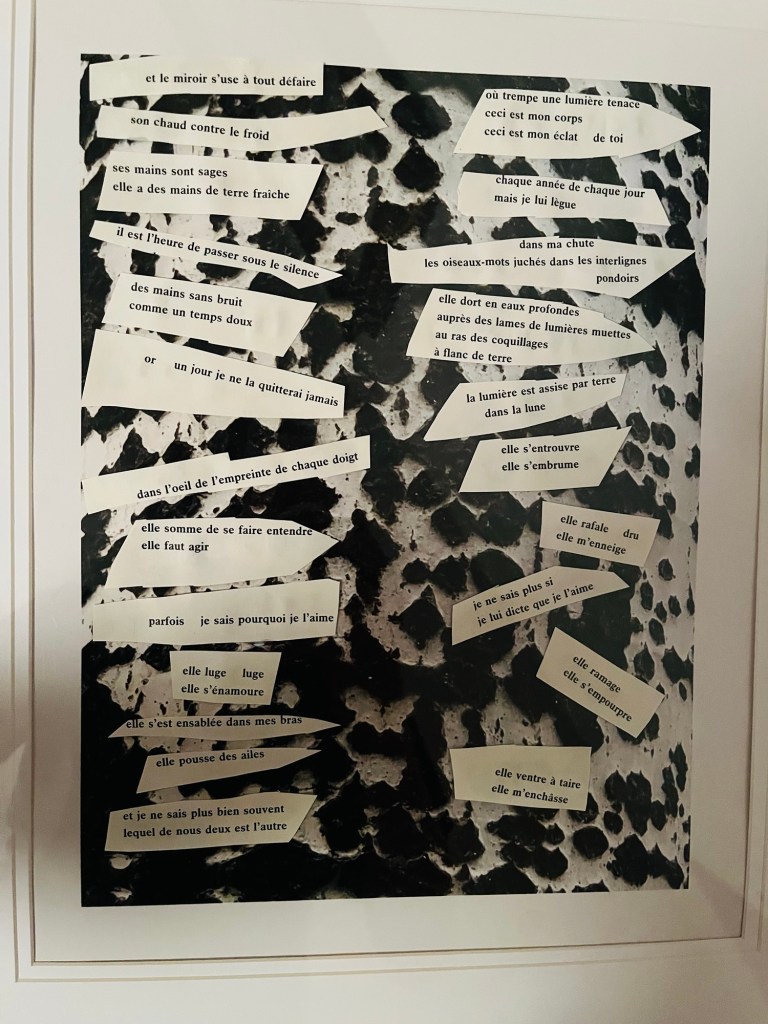 et le miroir s'use à tout défaire
son chaud contre le froid
ses mains sont sages
elle a des mains de terre fraîche
il est l'heure de passer sous le silence
des mains sans bruit
comme un temps doux
or un jour je ne la quitterai jamais
dans l'oeil de l'empreinte de chaque doigt
elle somme de se faire entendre
elle faut agir
parfois je sais pourquoi je l'aime
elle luge luge
elle s'énamoure
elle s'est ensablée dans mes bras
elle pousse des ailes
et je ne sais plus bien souvent
lequel de nous deux est l'autre
où trempe une lumière tenace
ceci est mon corps
ceci est mon éclat de toi
chaque année de chaque jour
mais je lui lègue
dans ma chute
les oiseaux-mots juchés dans les interlignes
pondoirs
elle dort en eaux profondes
auprès des lames de lumières muettes
au ras des coquillages
à flanc de terre
la lumière est assise par terre
dans la lune
elle s'entrouvre
elle s'embrume
elle rafale dru
elle m'enneige
je ne sais plus si
je lui dicte que je l'aime
elle ramage
elle s'empourpre
elle ventre à taire
elle m'enchâsse